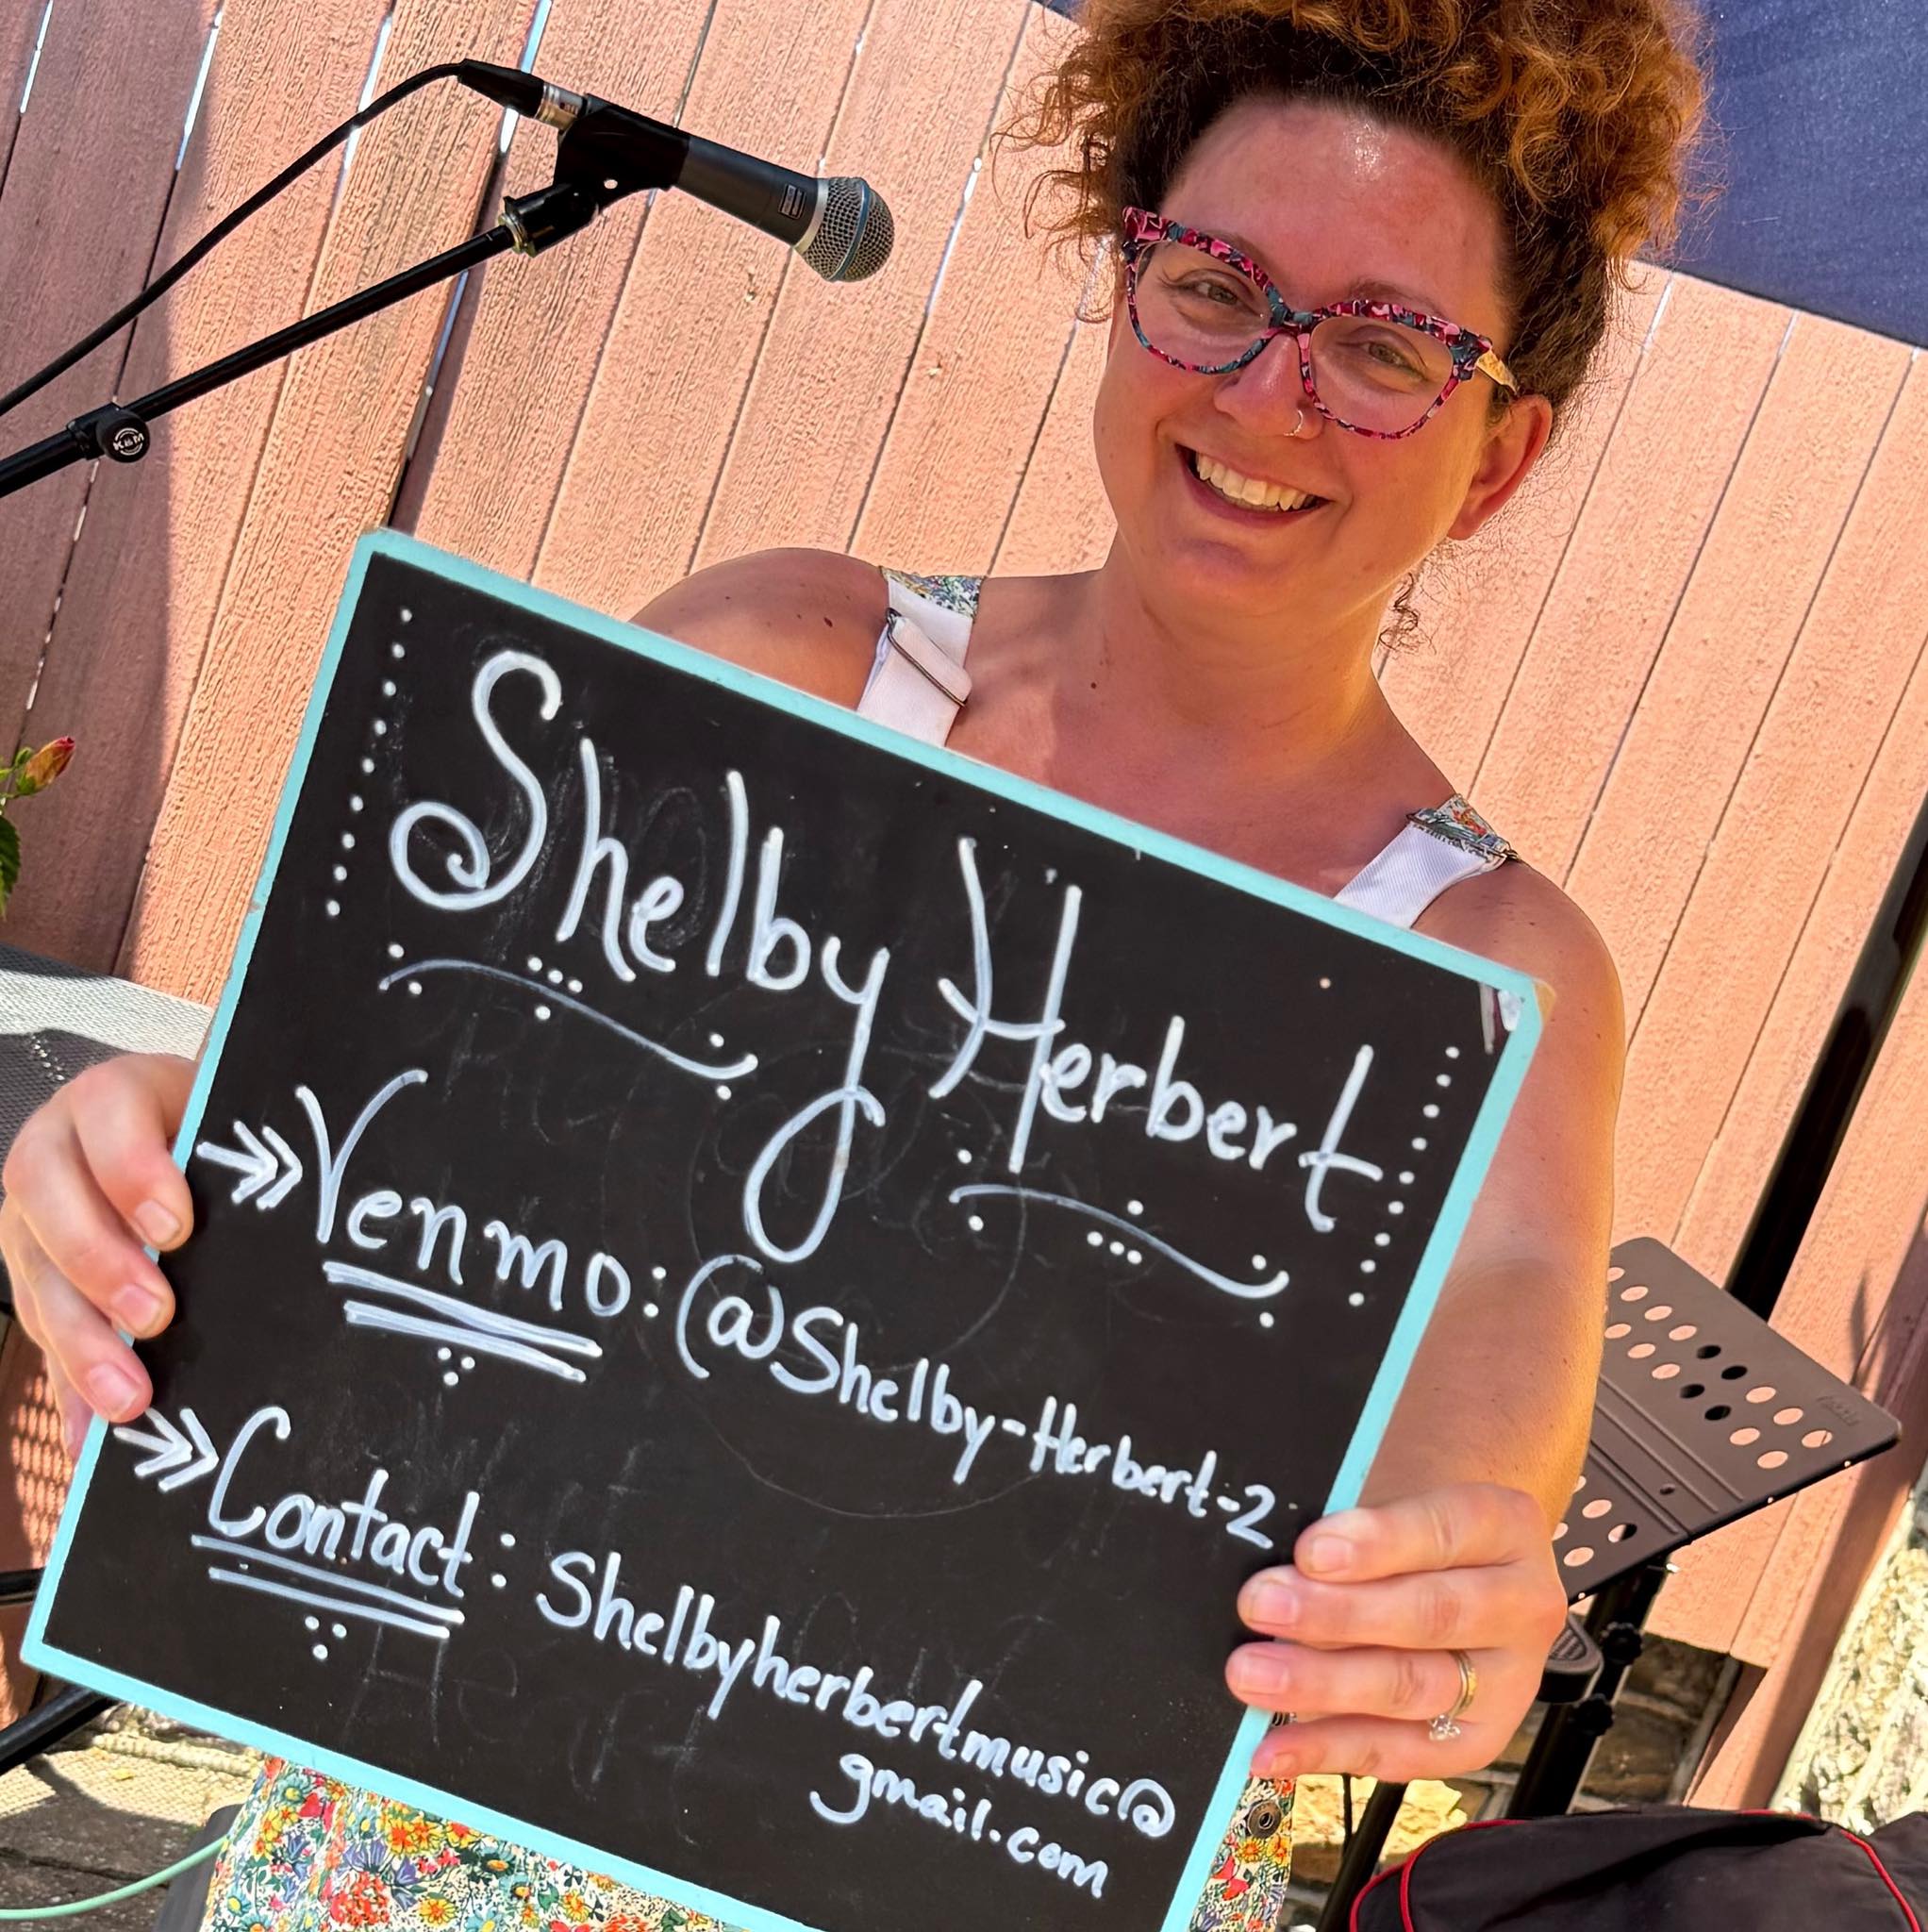 Shelby Herbert
Venmo: @Shelby-Herbert-2
Contact: Shelbyherbertmusic@
gmail.com
K&M